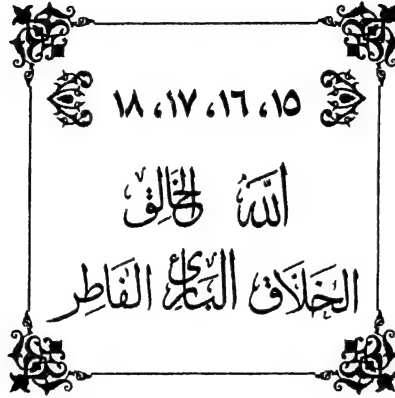 ١٥، ١٦، ١٧، ١٨
اللَّهُ الخَالِقُ
الخَلَاقُ البَارِئُ الفَاطِر